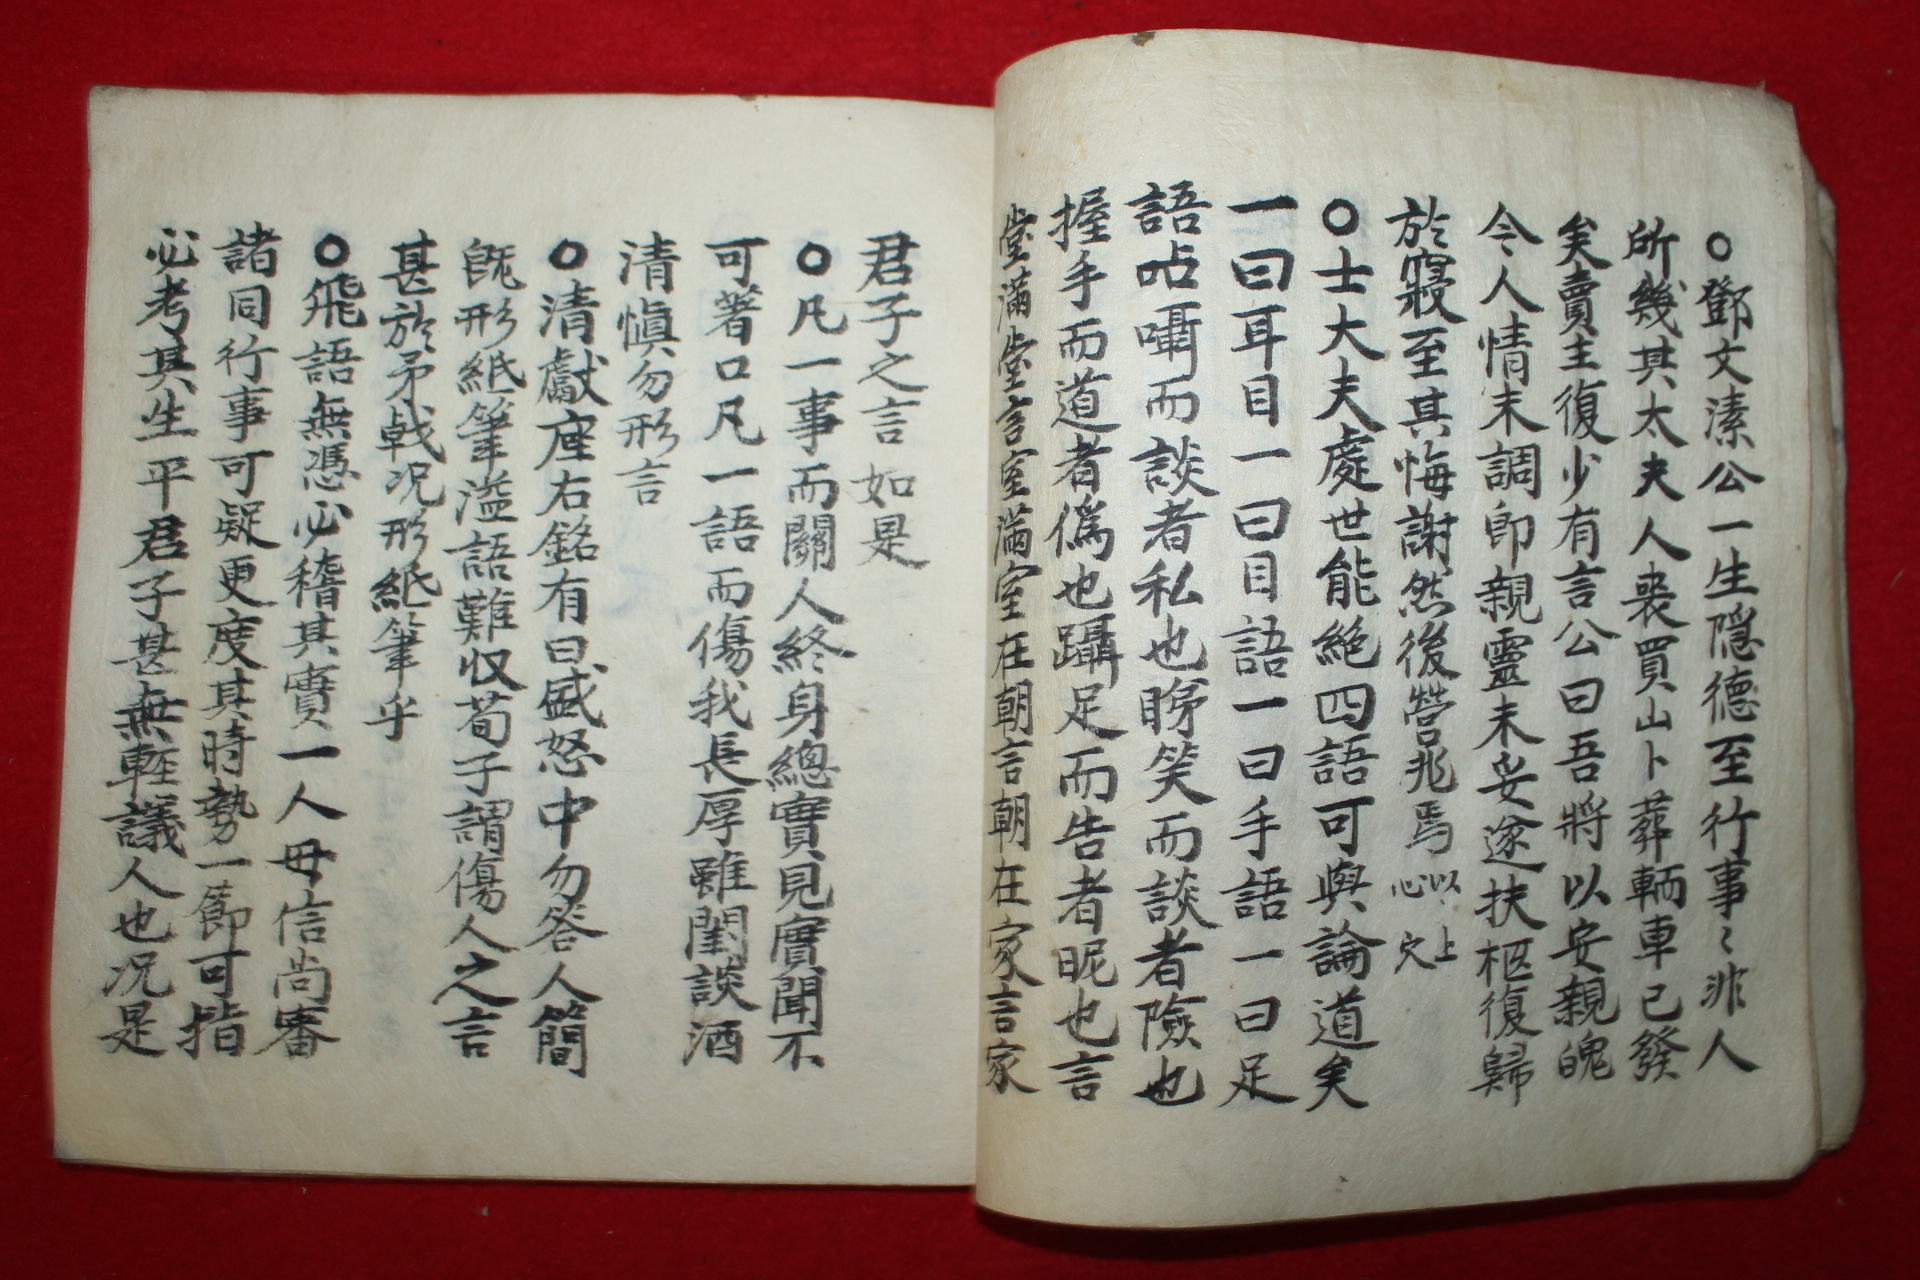 ○鄧文潔公一生隱德至行事〻非人
所幾其太夫人喪買山卜葬輀車已發
矣賣主復少有言公曰吾將以安親魄
今人情未調卽親靈未妥遂扶柩復歸
於寢至其悔謝然後營兆焉 以上心穴
○士大夫處世能絶四語可與論道矣
一曰耳目一曰目語一曰手語一曰足
語呫囁而談者私也睇笑而談者險也
握手而道者僞也躡足而告者昵也言
堂滿堂言室滿室在朝言朝在家言家
君子之言如是
○凡一事而關人終身總實見實聞不
可著口凡一語而傷我長厚雖閨談酒
清愼勿形言
○清獻座右銘有曰盛怒中勿答人簡
旣形紙筆溢語難収荀子謂傷人之言
甚於矛戟况形紙筆乎
○飛語無憑必稽其實一人毋信尚審
諸同行事可疑更度其時勢一節可指
必考其生平君子甚無輕議人也况是